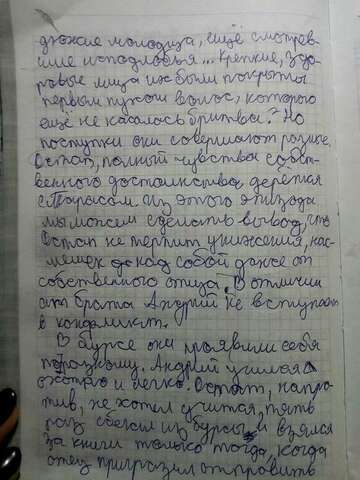 дюжие молодца, ещё смотрев-
шие исподлобья... Крепкие, здо-
ровые лица их были покрыты
первым пухом волос, которого
ещё не касалась бритва." Но
поступки они совершают разные.
Остап, полный чувства собст-
венного достоинства, дерётся
с Тарасом. Из этого эпизода
мы можем сделать вывод, что
Остап не терпит унижения, нас-
мешек до над собой даже от
собственного отца. В отличии
от брата Андрий не вступает
в конфликт.
В бурсе они проявили себя
по разному. Андрий учился
охотно и легко. Остап, напро-
тив, не хотел учится, пять
раз сбегал из бурсы и взялся
за книги только тогда, когда
отец пригрозил отправить